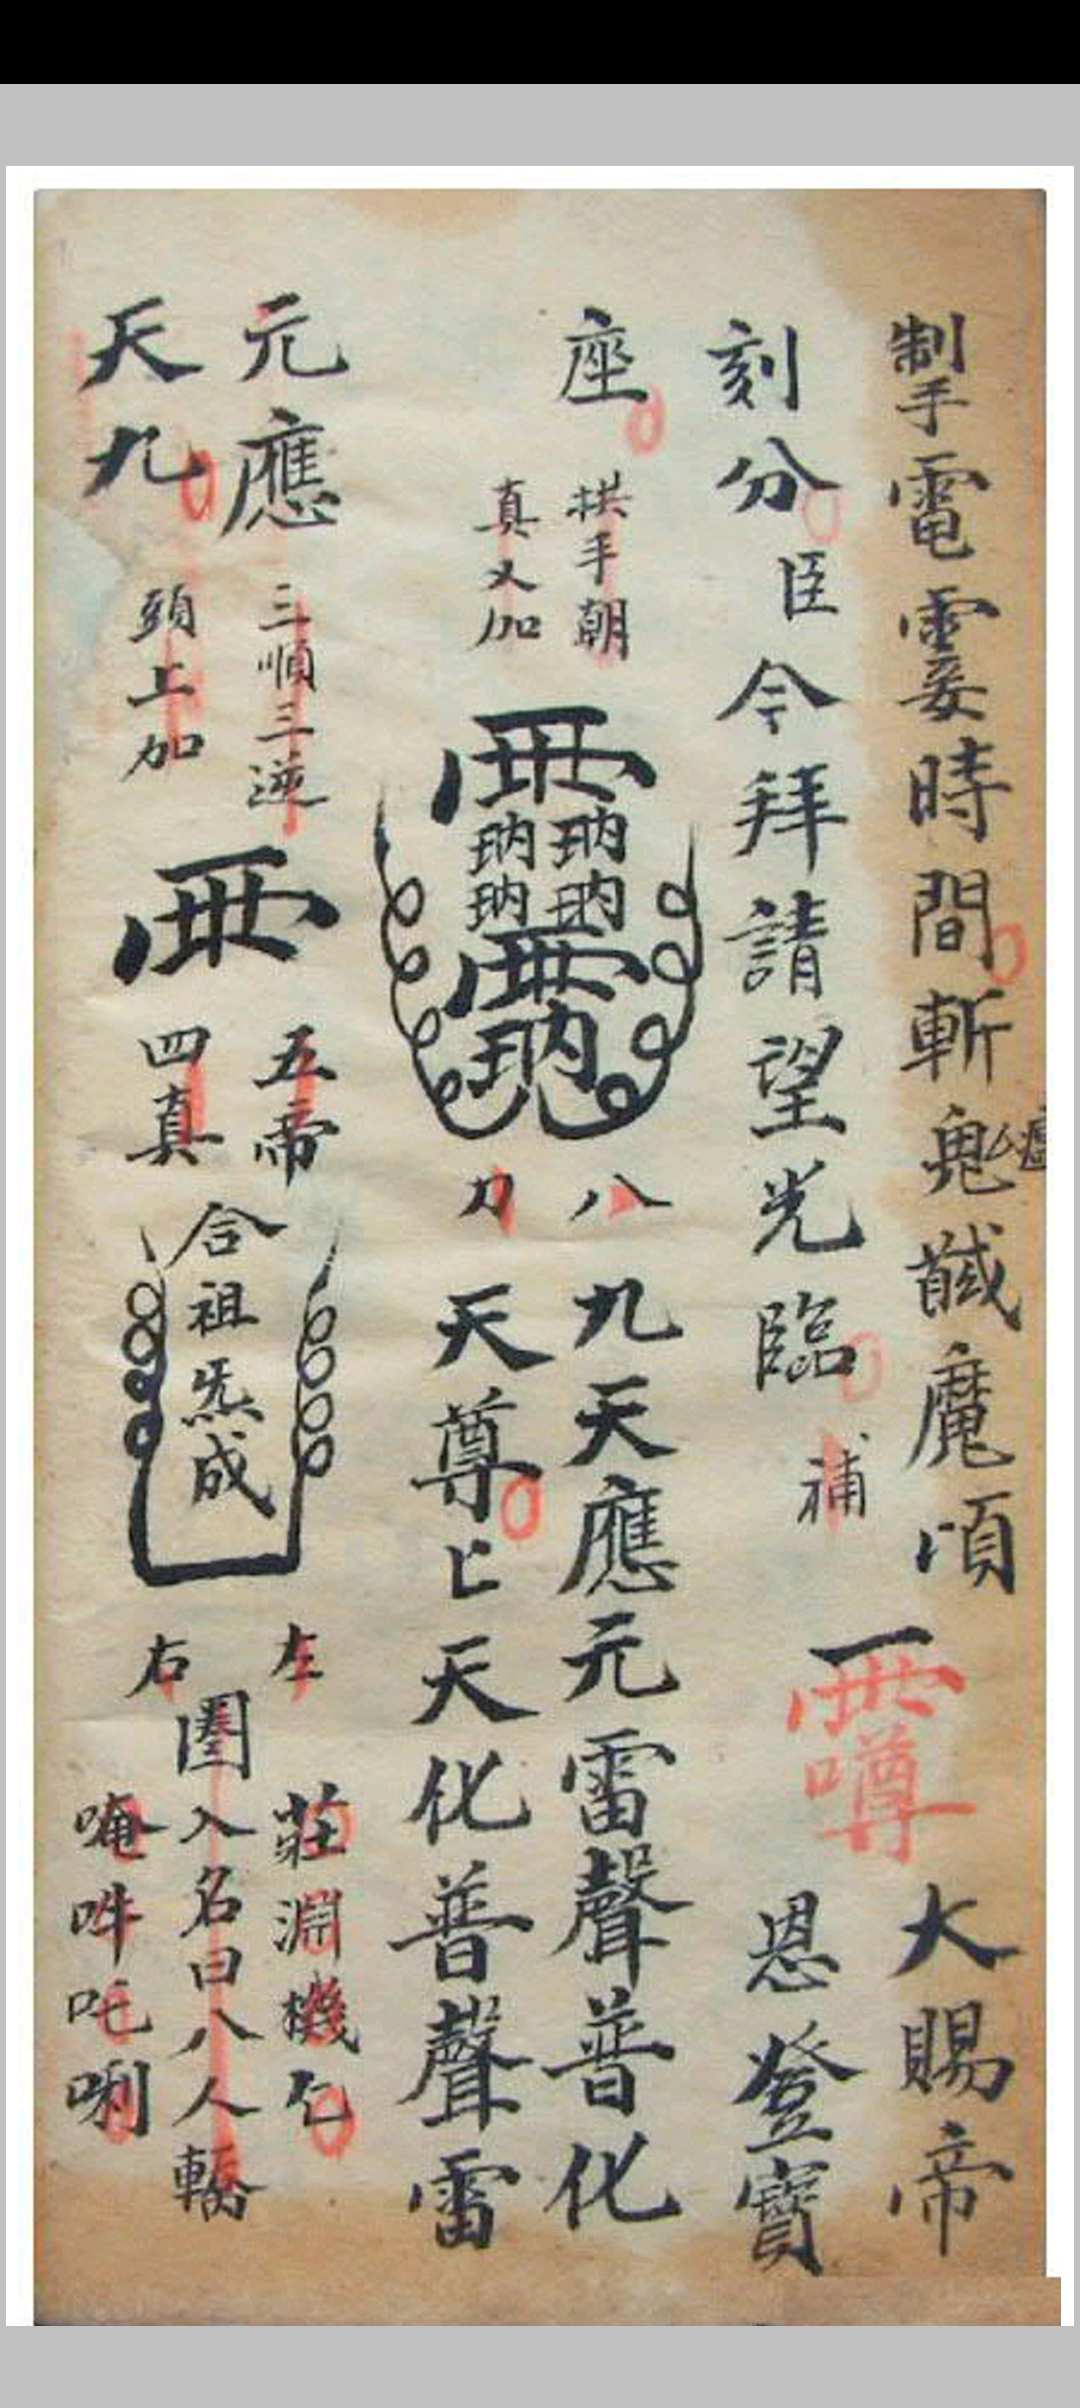 制手電霎時間斬鬼馘魔頃
大賜帝
刻分臣今拜請望光臨補
恩登寶
座
拱手朝
真又加
八
刀
九天應元雷聲普化
天尊匕天化普聲雷
元應
三順三逆
天九
頭上加
五帝
四真
合祖炁成
左
右
圈入名曰八人轎
莊淵機仁
唵吽吒唎